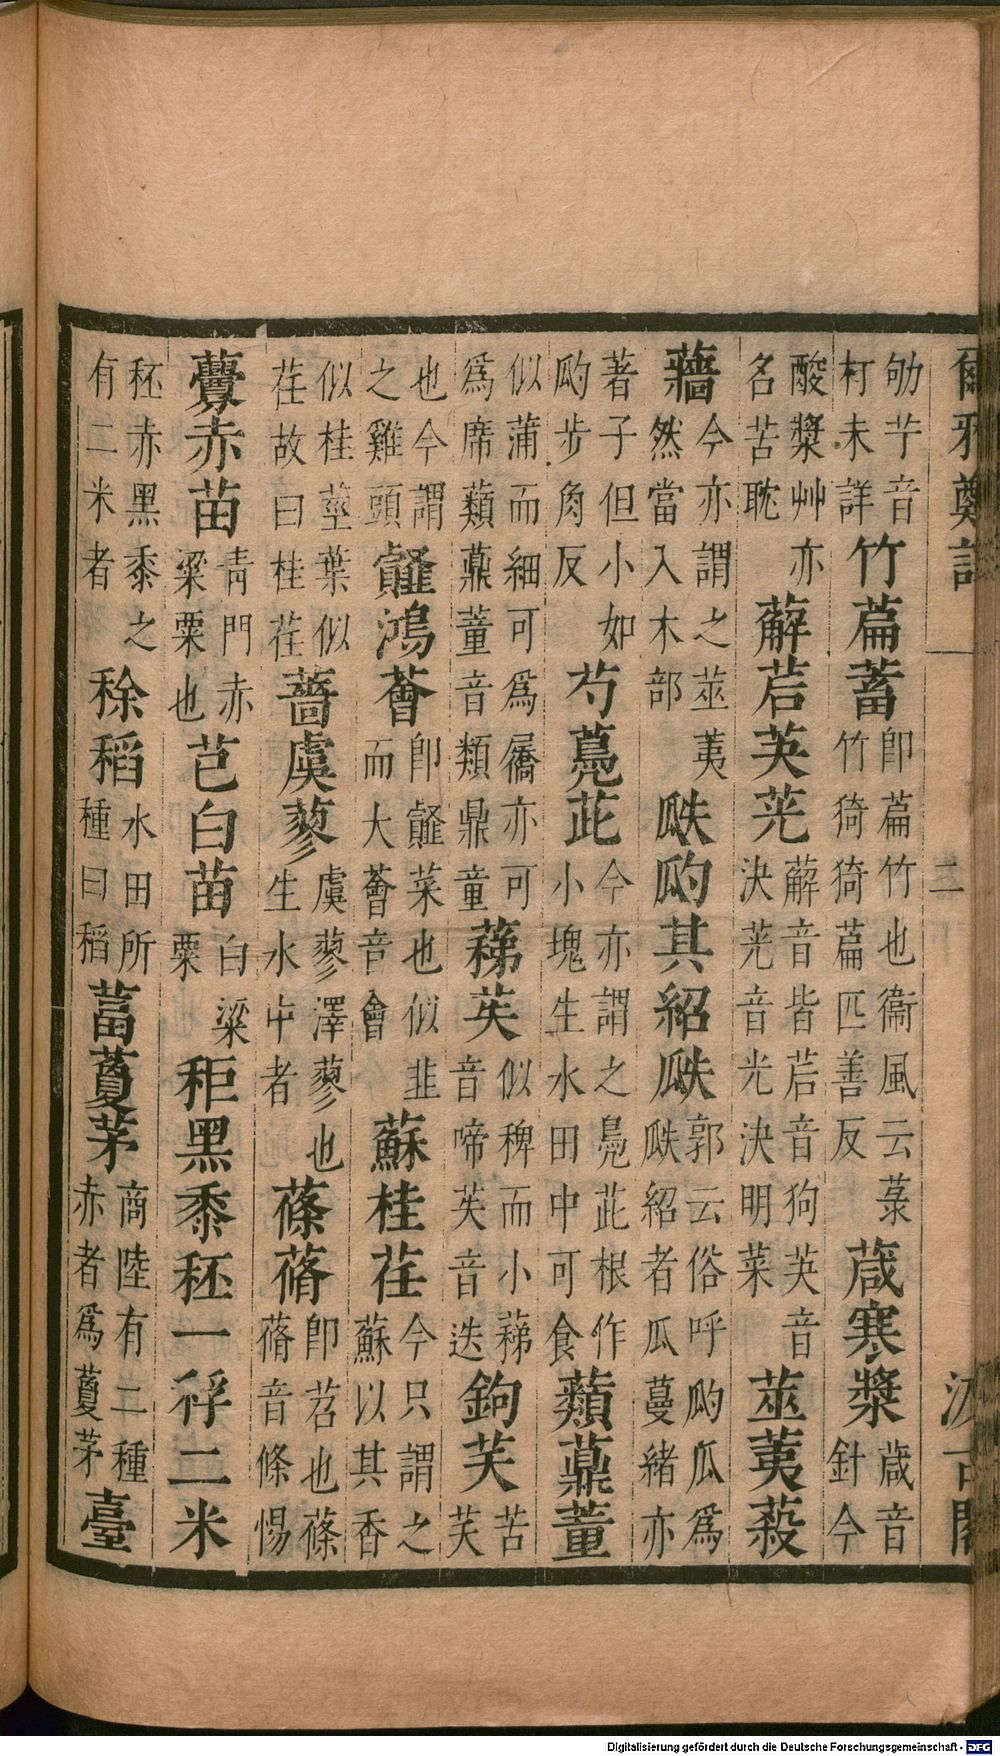 爾雅鄭註 二 汲古閣
劬芋音杇未詳竹萹蓄即萹竹也衞風云菉竹猗猗萹匹善反葴寒漿葴音針今
酸漿艸亦名苦耽薢茩芵茪薢音皆茩音狗芵音決茪音光決明菜莁荑蔱
蘠今亦謂之莁荑然當入木部瓞瓝其紹瓞郭云俗呼瓝瓜爲瓞紹者瓜蔓緒亦
著子但小如瓝步角反芍鳧茈今亦謂之鳧茈根作小塊生水田中可食蘱薡蕫
似蒲而細可爲屩亦可爲席蘱薡蕫音類鼎童蕛苵似稗而小蕛音啼苵音迭鉤芙苦芙
也今謂之雞頭䪥鴻薈即䪥菜也似韭而大薈音會蘇桂荏今只謂之蘇以其香
似桂莖葉似荏故曰桂荏薔虞蓼虞蓼澤蓼也生水中者蓧蓨即苕也蓧蓨音條惕
虋赤苗青門赤粱粟也芑白苗白粱粟秬黑黍秠一稃二米
秠赤黑黍之有二米者稌稻水田所種曰稻葍藑茅商陸有二種赤者爲藑茅臺
Digitalisierung gefördert durch die Deutsche Forschungsgemeinschaft - DFG